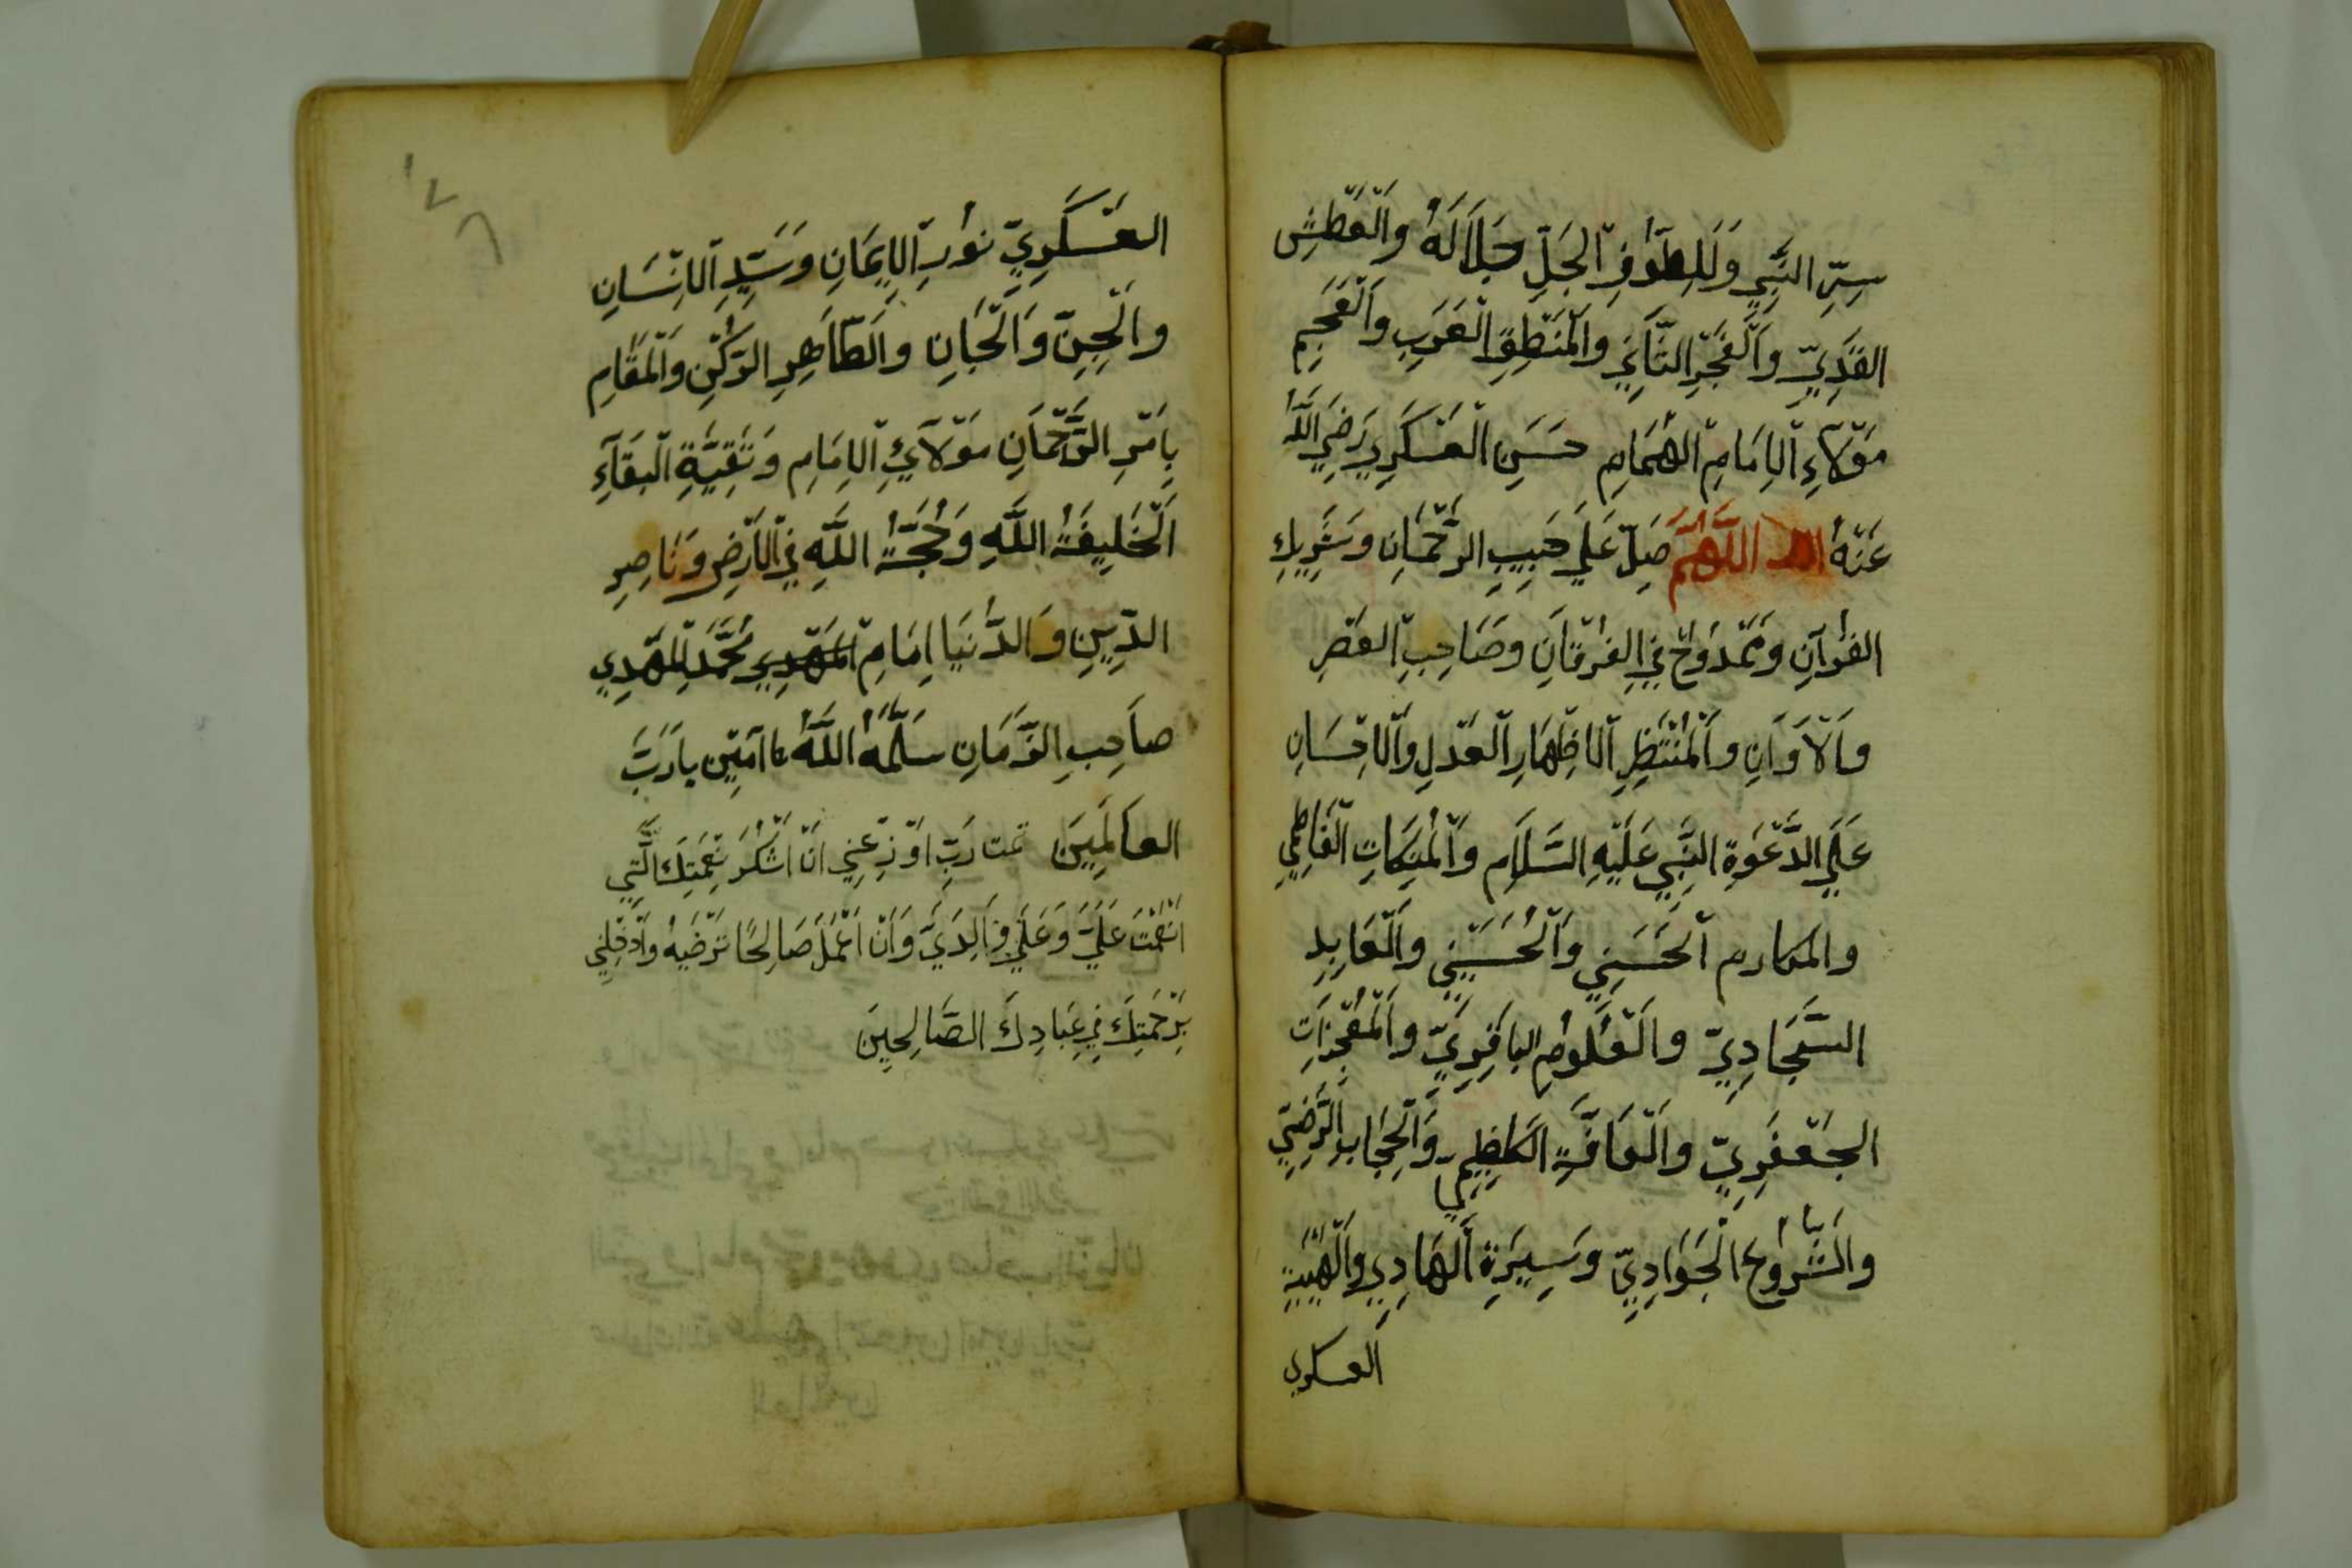 سِرِّ النَّبِي وَلَلِطَوْفِ الْجَلِّ جَلَالَهُ وَالْعَطَشِ
وَالْفَجْرِ وَالْمَنْطِقِ الْعَرَبِ وَالْعَجَمِ
مَوْلَاءِ الْاِمَامِ الْهُمَامِ حَسَنِ الْعَسْكَرِي رَضِيَ اللَّهُ
عَنْهُ اللَّهُمَّ صَلِّ عَلَي حَبِيبِ الرَّحْمَانِ وَشَرِيكِ
الْقُرْآنِ وَمَمْدُوْحٌ فِي الْفُرْقَانِ وَصَاحِبِ الْعَصْرِ
وَالْاَوَانِ وَالْمُنْتَظِرِ الْاِظْهَارِ الْعَدْلِ وَالْاِحْسَانِ
عَلَي الدَّعْوَةِ النَّبِي عَلَيْهِ السَّلَامِ وَالْفَاطِمِي
والمكارم الْحَسَنِي وَالْحُسَيْنِي وَالْعَابِدِ
السَّجَّادِيِّ وَالْعُلُومِ الْبَاقِرِيِّ وَالْمُعْجِزَاتِ
الْجَعْفَرِيِّ وَالْكَاظِمِي وَالْحِجَابِ الرَّضِيِّ
وَالشُّرُوْعِ الْجَوَادِيِّ وَسِيرَةِ الْهَادِي وَالْهَيْبَةِ
العسكري
١٧٦
الْعَسْكَرِيِّ نُوْرِ الْاِيمَانِ وَسَيِّدِ الْاِنْسَانِ
وَالْجِنِّ وَالْجَانِ وَالطَّاهِرِ الرُّكْنِ وَالْمَقَامِ
بِاَمْرِ الرَّحْمَانِ مَوْلَائِ الْاِمَامِ وَبَقِيَّةِ الْبَقَآءِ
الْخَلِيفَةُ اللَّهِ وَحُجَّةُ اللَّهِ فِي الْاَرْضِ وَنَاصِرِ
الدِّينِ وَالدُّنْيَا اِمَامِ الْمَهْدِي مُحَمَّدِ الْمَهْدِي
صَاحِبِ الزَّمَانِ سَلَّمَهُ اللَّهُ آمِيْن يا رَبَّ
الْعَالَمِينَ تمت رَبِّ اَوْزِعْنِي اَنْ اَشْكُرَ نِعْمَتِكَ الَّتِي
اَنْعَمْتَ عَلَيَّ وَعَلَي وَالِدَيَّ وَاَنْ اَعْمَلَ صَالِحًا تَرْضَيهُ وَاَدْخِلْنِي
بِرَحْمَتِكَ فِي عِبَادِكَ الصَّالِحِينَ